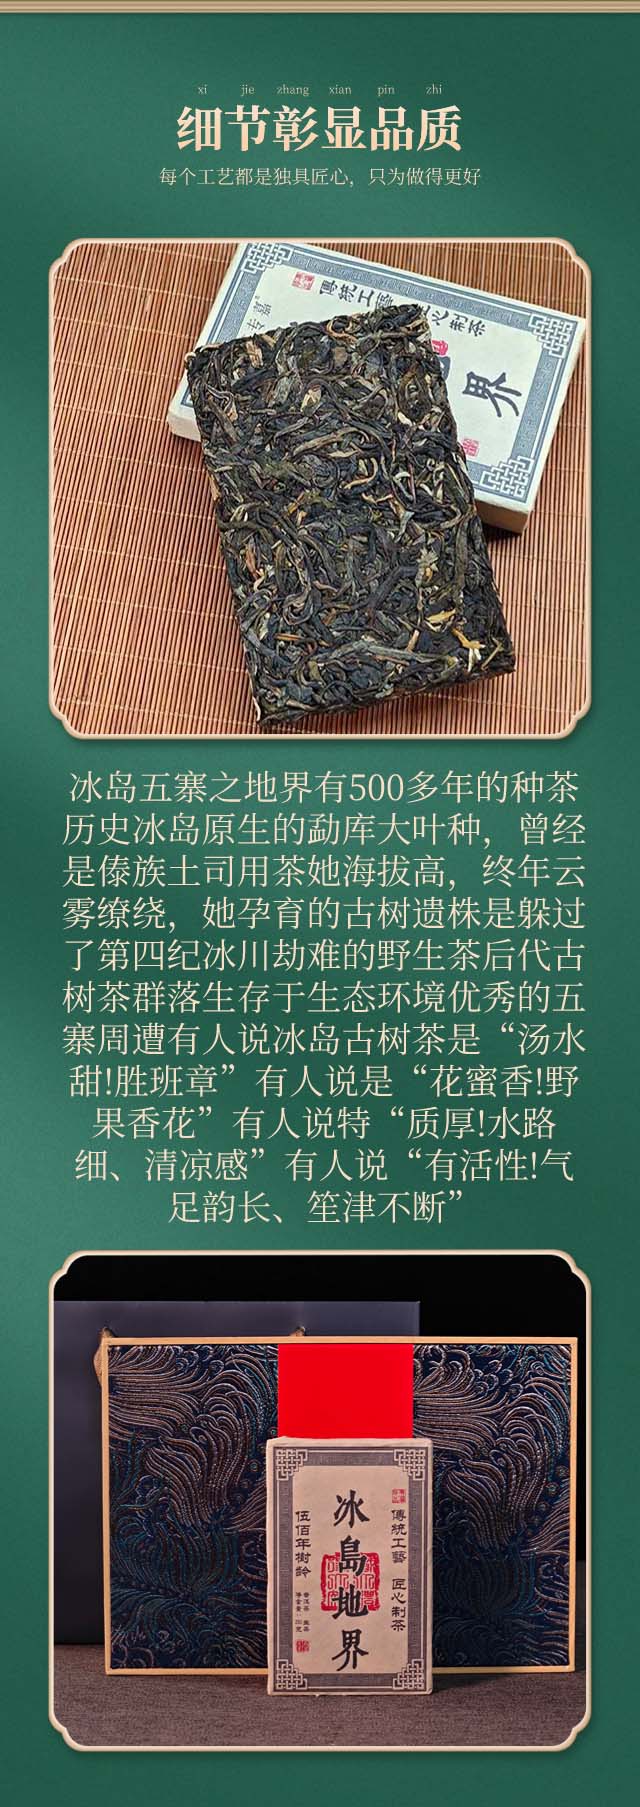 xi jie zhang xian pin zhi
细节彰显品质
每个工艺都是独具匠心，只为做得更好
傳統工藝 匠心制茶
界
冰岛五寨之地界有500多年的种茶
历史冰岛原生的勐库大叶种，曾经
是傣族土司用茶她海拔高，终年云
雾缭绕，她孕育的古树遗株是躲过
了第四纪冰川劫难的野生茶后代古
树茶群落生存于生态环境优秀的五
寨周遭有人说冰岛古树茶是“汤水
甜!胜班章”有人说是“花蜜香!野
果香花”有人说特“质厚!水路
细、清凉感”有人说“有活性!气
足韵长、笙津不断”
傳統工藝 匠心制茶
冰島地界
伍佰年樹龄
普洱茶 生茶
净含量：250克